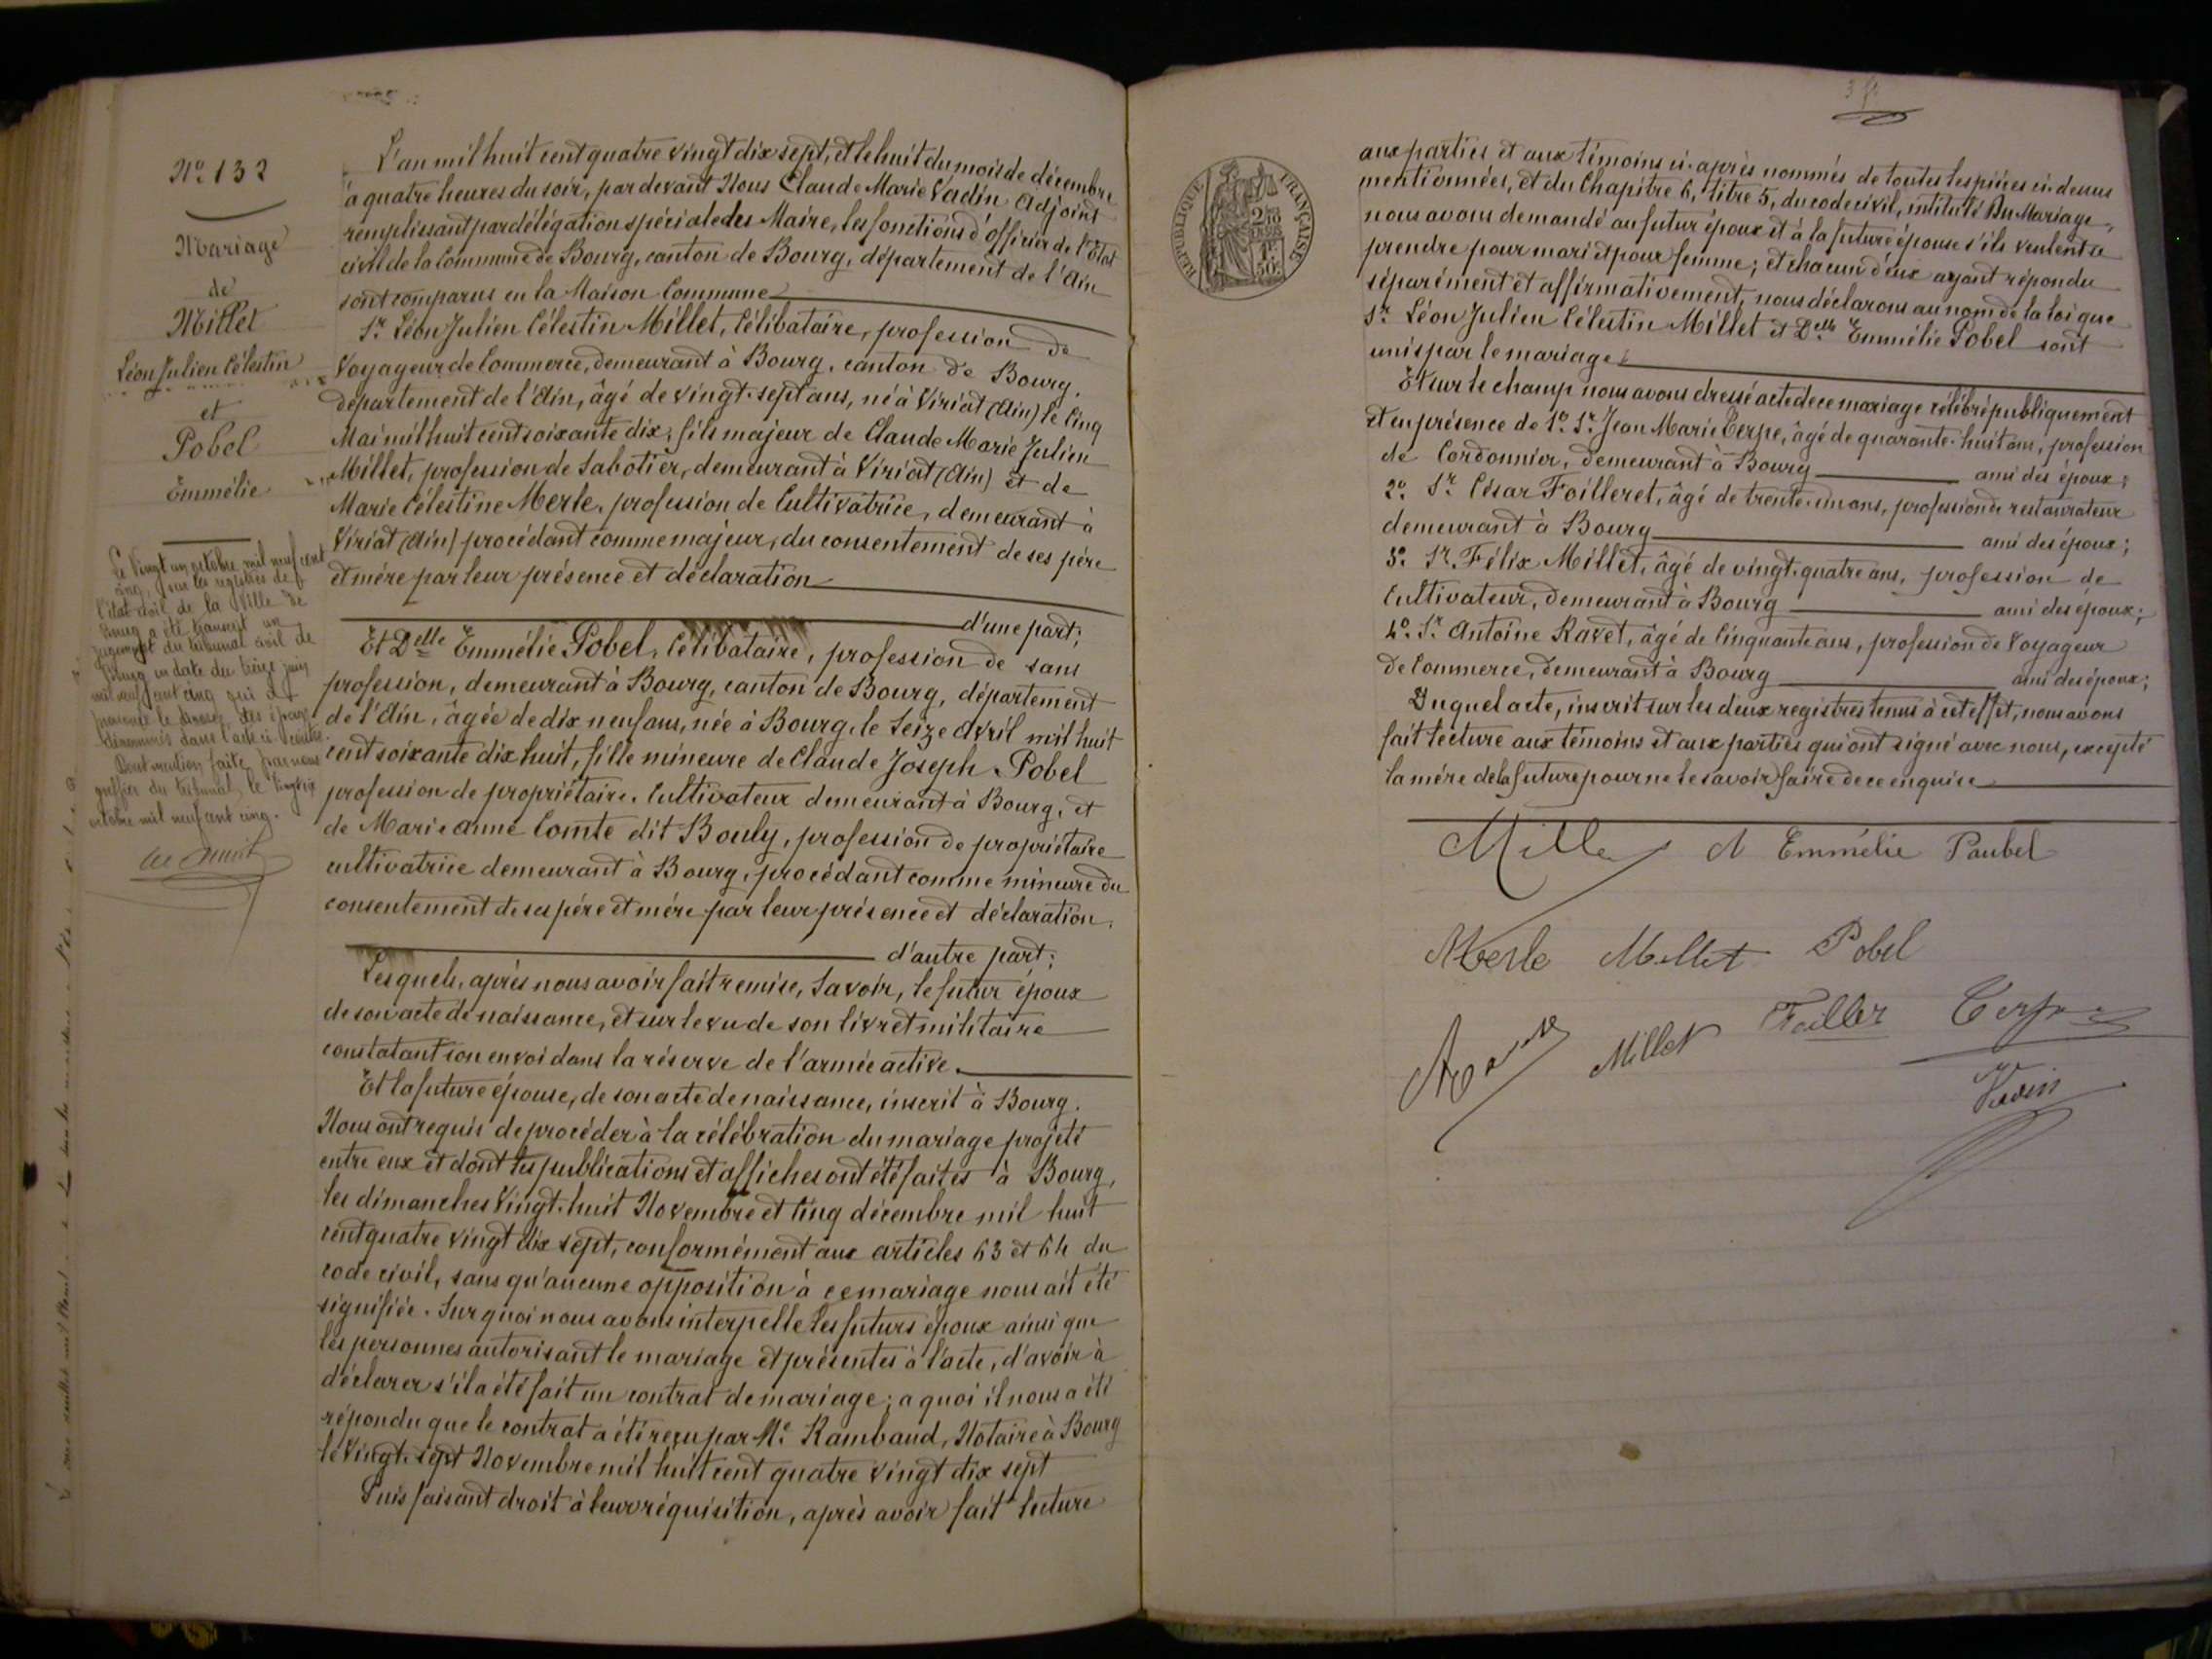 No 132
Mariage
de
Millet
Léon Julien Célestin
et
Pobel
Emmélie
Le vingt un octobre mil neuf cent
cinq, sur les registres de
l'état civil de la Ville de
Bourg a été transcrit un
jugement du tribunal civil de
Bourg en date du treize juin
mil neuf cent cinq qui a
prononcé le divorce des époux
dénommés dans l'acte ci-contre.
Dont mention faite par nous
greffier du tribunal, le vingt six
octobre mil neuf cent cinq.
L'an mil huit cent quatre vingt dix sept, et le huit du mois de décembre
à quatre heures du soir, par devant Nous Claude Marie Vadin Adjoint
remplissant par délégation spéciale des Maire, les fonctions d'officier de l'État
civil de la Commune de Bourg, canton de Bourg, département de l'Ain
sont comparus en la Maison Commune
Sr Léon Julien Célestin Millet, Célibataire, profession de
Voyageur de Commerce, demeurant à Bourg, canton de Bourg,
département de l'Ain, âgé de vingt-sept ans, né à Viriat (Ain) le Cinq
Mai mil huit cent soixante dix, fils majeur de Claude Marie Julien
Millet, profession de Sabotier, demeurant à Viriat (Ain) et de
Marie Célestine Merle, profession de Cultivatrice, demeurant à
Viriat (Ain) procédant comme majeur, du consentement de ses père
et mère par leur présence et déclaration
d'une part;
Et Delle Emmélie Pobel, Célibataire, profession de sans
profession, demeurant à Bourg, canton de Bourg, département
de l'Ain, âgée de dix neuf ans, née à Bourg, le Seize Avril mil huit
cent soixante dix huit, fille mineure de Claude Joseph Pobel
profession de propriétaire. Cultivateur demeurant à Bourg, et
de Marie Anne Comte dit Bouly, profession de propriétaire
cultivatrice demeurant à Bourg, procédant comme mineure du
consentement de ses père et mère par leur présence et déclaration.
d'autre part;
Lesquels, après nous avoir fait remise, Savoir, le futur époux
de son acte de naissance, et sur le vu de son livret militaire
constatant son envoi dans la réserve de l'armée active.
Et la future épouse, de son acte de naissance, inscrit à Bourg.
Nous ont requis de procéder à la célébration du mariage projeté
entre eux et dont les publications et affiches ont été faites à Bourg,
les dimanches Vingt-huit Novembre et Cinq décembre mil huit
cent quatre vingt dix sept, conformément aux articles 63 et 64 du
code civil, sans qu'aucune opposition à ce mariage nous ait été
signifiée. Sur quoi nous avons interpellé les futurs époux ainsi que
les personnes autorisant le mariage et présentes à l'acte, d'avoir à
déclarer s'il a été fait un contrat de mariage; a quoi il nous a été
répondu que le contrat a été reçu par Me Rambaud, Notaire à Bourg
le Vingt-sept Novembre mil huit cent quatre vingt dix sept
Puis faisant droit à leur réquisition, après avoir fait lecture
3 f
REPUBLIQUE FRANÇAISE
aux parties et aux témoins ci-après nommés de toutes les pièces ci-dessus
mentionnées, et du Chapitre 6, titre 5, du code civil, intitulé Du Mariage,
nous avons demandé au futur époux et à la future épouse s'ils veulent se
prendre pour mari et pour femme; et chacun d'eux ayant répondu
séparément et affirmativement, nous déclarons au nom de la loi que
Sr Léon Julien Célestin Millet et Delle Emmélie Pobel sont
unis par le mariage
Et sur le champ nous avons dressé acte de ce mariage célébré publiquement
et en présence de 1o Sr Jean Marie Cerpe, âgé de quarante-huit ans, profession
de Cordonnier, demeurant à Bourg ami des époux;
2o Sr César Foilleret, âgé de trente-un ans, profession de restaurateur
demeurant à Bourg ami des époux;
3o Sr Félix Millet, âgé de vingt-quatre ans, profession de
Cultivateur, demeurant à Bourg ami des époux;
4o Sr Antoine Ravet, âgé de Cinquante ans, profession de Voyageur
de Commerce, demeurant à Bourg ami des époux;
Duquel acte, inscrit sur les deux registres tenus à cet effet, nous avons
fait lecture aux témoins et aux parties qui ont signé avec nous, excepté
la mère de la future pour ne le savoir faire de ce enquise
Millet Emmélie Paubel
Merle Millet Pobel
Millet
Vadin